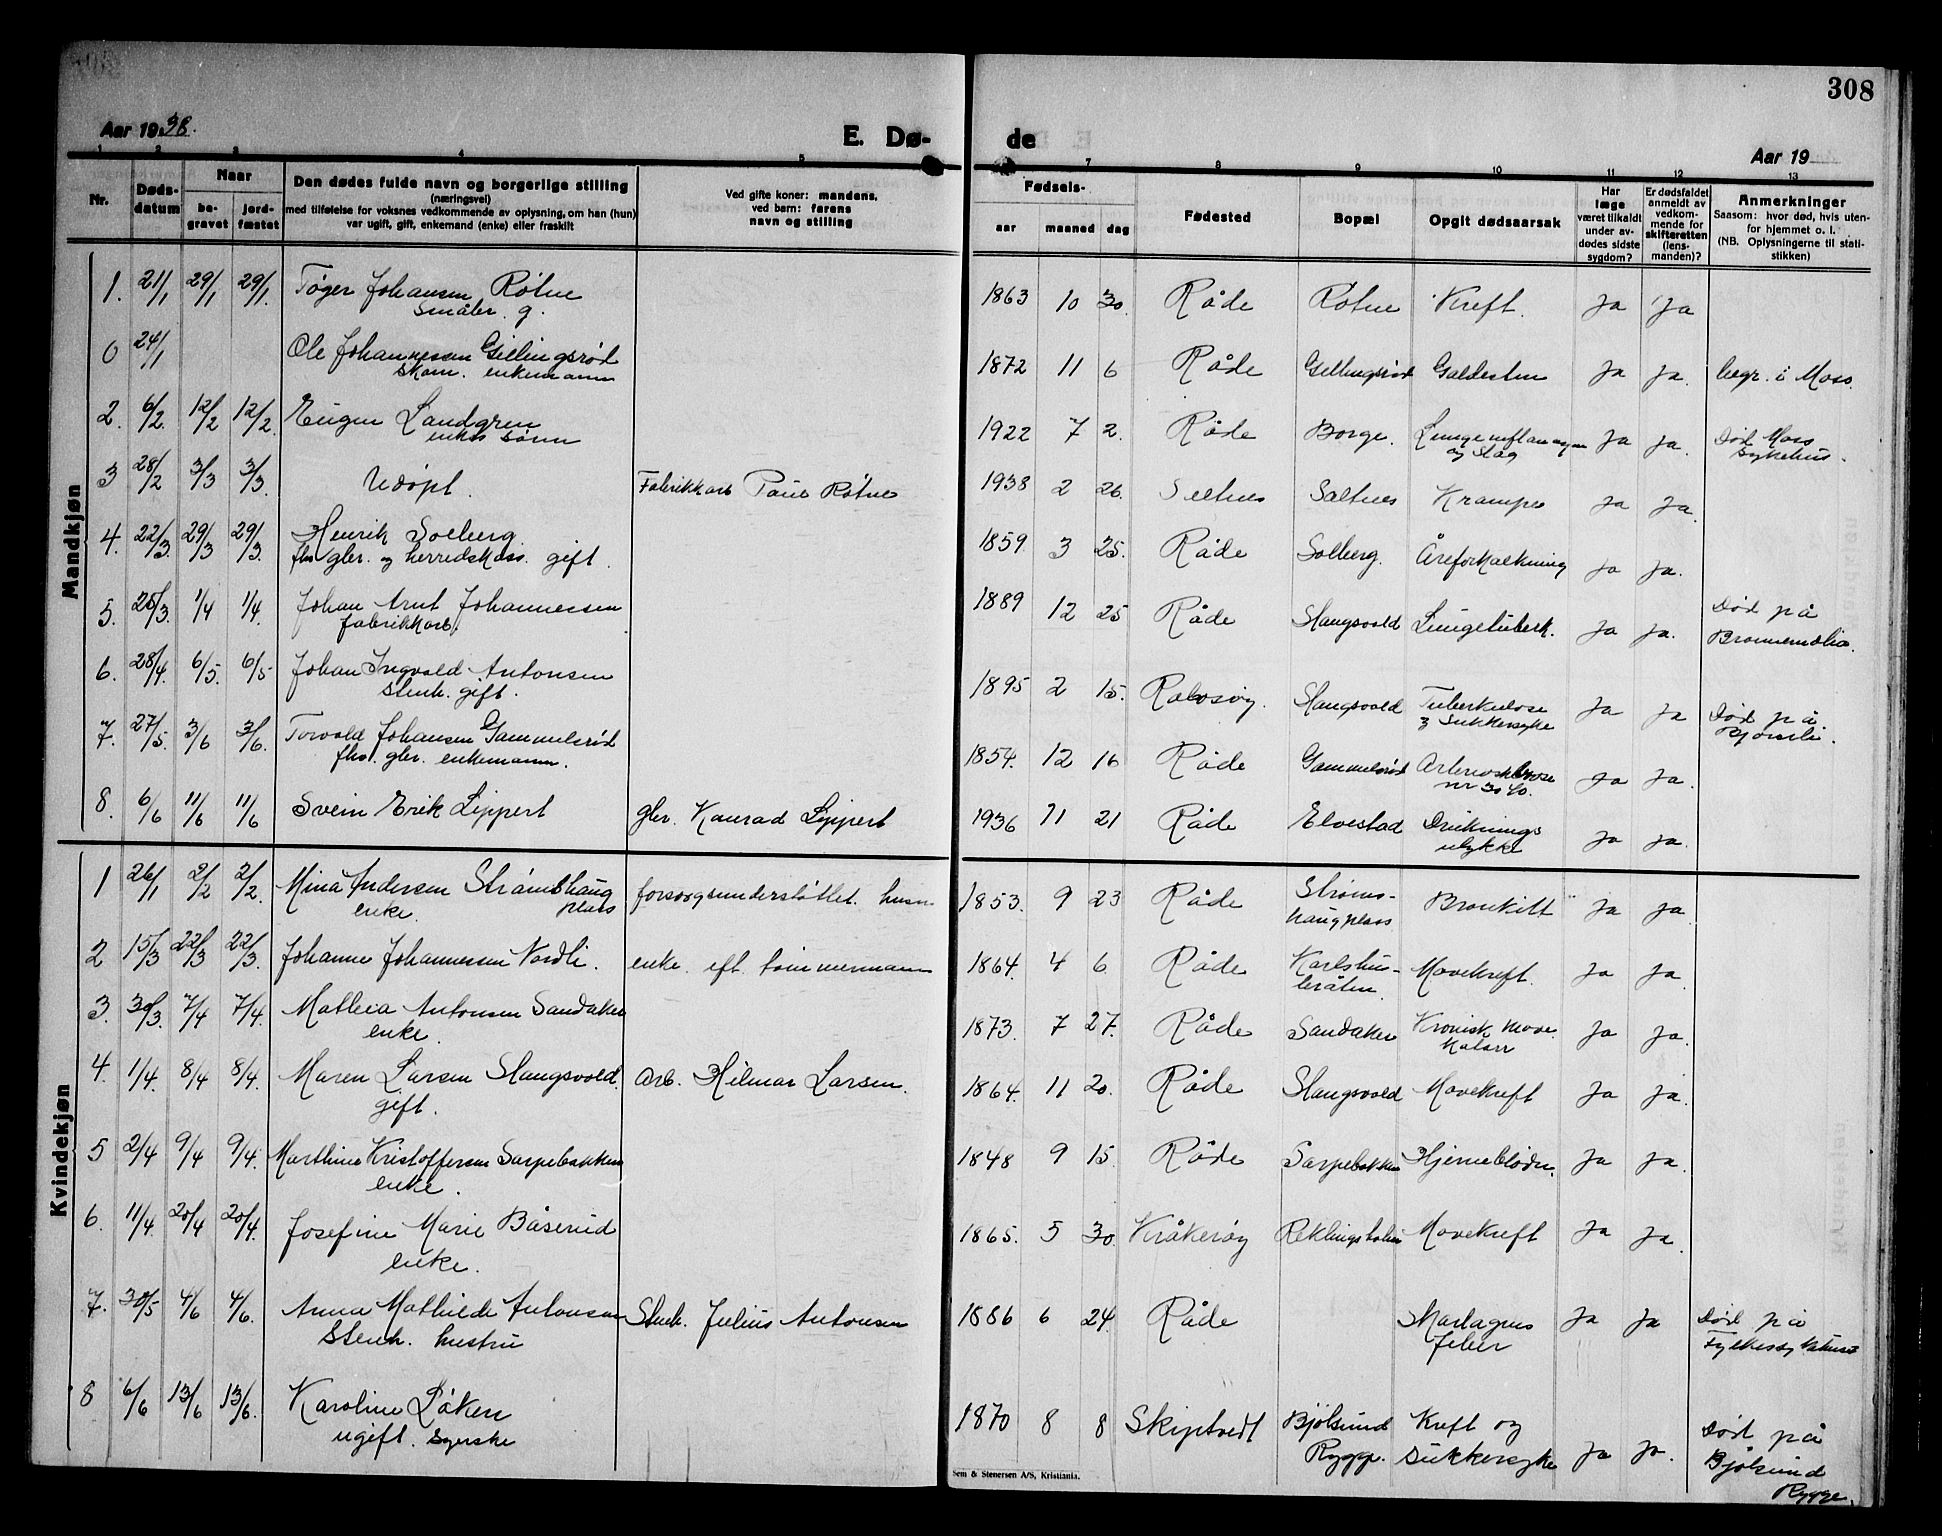 308
Aar 1938.
E. Dø-
de
Aar 19
1 2 3 4 5
7 8 9 10 11 12 13
Nr.
Døds-
datum
Naar
be-
gravet
jord-
fæstet
Den dødes fulde navn og borgerlige stilling
(næringsvei)
med tilføielse for voksnes vedkommende av oplysning, om han (hun)
var ugift, gift, enkemand (enke) eller fraskilt
Ved gifte koner: mandens,
ved barn: farens
navn og stilling
Fødsels-
aar maaned dag
Fødested
Bopæl
Opgit dødsaarsak
Har
læge
været tilkaldt
under av-
dødes sidste
sygdom?
Er dødsfaldet
anmeldt av
vedkom-
mende for
skifteretten
(lens-
manden)?
Anmerkninger
Saasom: hvor død, hvis uten-
for hjemmet o. l.
(NB. Oplysningerne til stati-
stikken)
Mandkjøn
1. 21/1 29/1 29/1. Tøger Johansen Røtne 1863 10 30. Råde Røtne Kreft. Ja Ja
Småbr. g.
0 24/1 Ole Johannessen Gillingsrød 1872 11 6 Råde Gillingsrød Galdesten Ja Ja. begr. i Moss.
skom. enkemann
2. 6/2. 12/2 12/2. Eugen Landgren 1922 7 2. Råde Borge. Ja Ja. Død Moss
enkes sønn og Slag Sykehus.
3 28/2 3/3 3/3. Udøpt. Fabrikkarb Paul Røtne 1938 2 26. Saltnes Krampe Ja Ja.
4. 22/3. 29/3 29/3. Henrik Solberg. 1859. 3 25. Råde Solberg. Åreforkalkning Ja Ja.
fhv glbr. og herredskass. gift.
5. 1/4 1/4. Johan Arnt Johannessen 1889 12 25 Råde Slangsvold Lungetuberk. Ja Ja. Død på
fabrikkarb.
6. 28/4. 6/5. 6/5 Johan Ingvald Antonsen 1895 2 15. Rolvsøy. Slangsvold Tuberkulose Ja Ja Død på
Stenh. gift. & Sukkersyke
7. 27/5. 3/6 3/6. Torvald Johansen Gammelsrød 1854. 12 16 Råde Gammelsrød Ja Ja.
fhv. glbr. enkemann.
8. 6/6 11/6 11/6 Svein Erik Lippert gbr. Konrad Lippert 1936 11 21 Råde Elvestad Druknings Ja Ja.
ulykke
Kvindekjøn
1 26/1 2/2 2/2. Mina Andersen Strømshaug forsorgsunderstøttet. husm. 1853. 9 23 Råde Strøms- Bronkitt Ja Ja.
enke. plass haugplass
2 15/3 22/3 22/3. Johanne Johannessen Nordli. enke. eft. tømmermann 1864. 4 6 Råde Karlshus- Mavekreft. Ja Ja.
bråten.
3. 30/3. 7/4 7/4. Mathea Antonsen Sandaker 1873. 7 27. Råde Sandaker Kronisk mave Ja Ja.
enke. Katarr
4. 1/4. 8/4 8/4. Maren Larsen Slangsvold. Arb. Hilmar Larsen. 1864. 11 20. Råde Slangsvold Mavekreft Ja Ja.
gift.
5 2/4 9/4 9/4. Marthine Kristoffersen Sarpebakken 1848 9 15. Råde Sarpebakken Hjernebløde. Ja Ja.
enke.
6. 11/4. 20/4 20/4. Josefine Marie Båserud 1865. 5 30. Kråkerøy Mavekreft Ja Ja.
enke.
7. 30/5 4/6 4/6. Anna Mathilde Antonsen Stenh. Julius Antonsen 1886 6 24. Råde Skarlagens Ja Ja Død på
Stenh. hustru feber Fylkessykehuset
8 6/6 13/6 13/6. Karoline Løken 1870 8 8 Skiptvedt Bjølsund Kreft og Ja Ja. Død på
ugift. Syerske Rygge. Sukkersyke Bjølsund
Rygge.
Sem & Stenersen A/S, Kristiania.